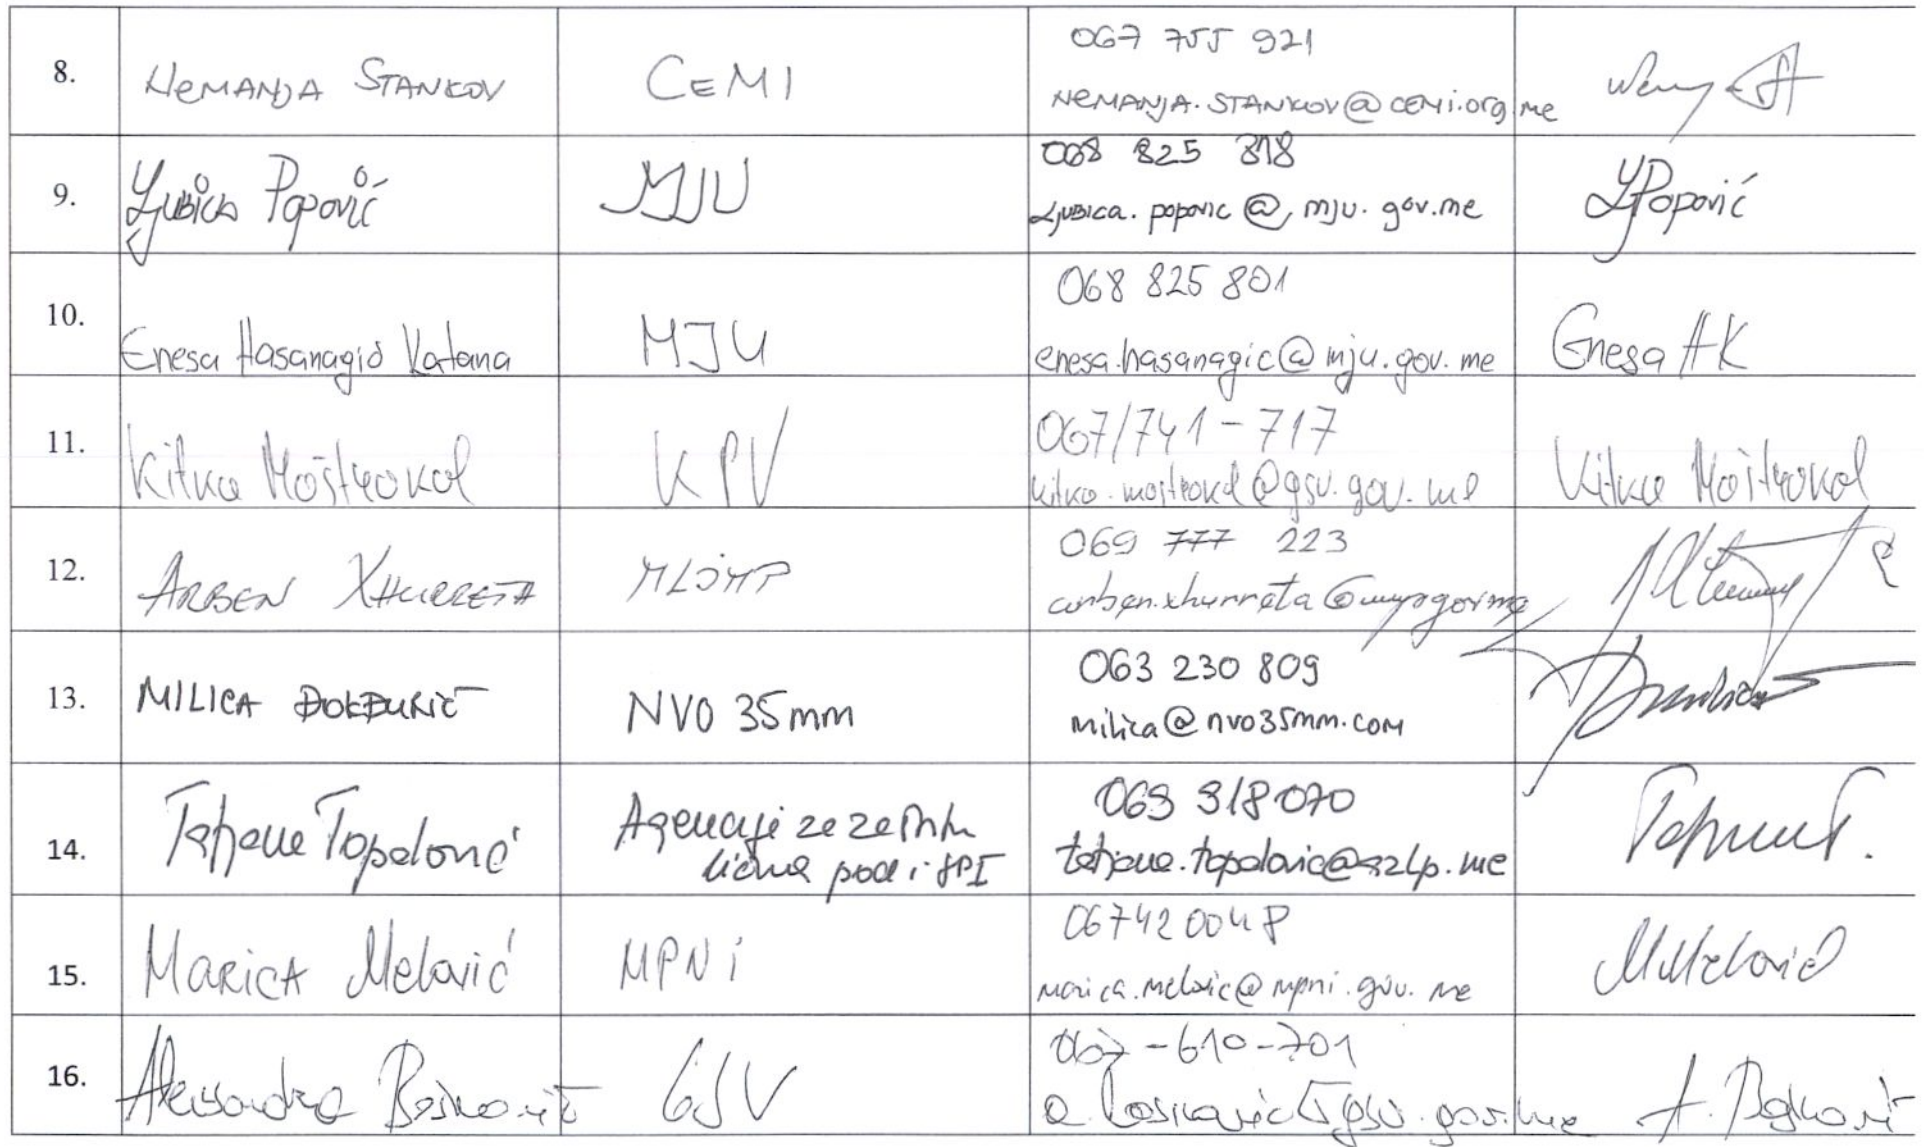 8. NEMANJA STANKOV CEMI 067 755 921
NEMANJA.STANKOV@CEMI.org.me
9. Ljubica Popović MJU 068 825 818
Ljubica.popovic@mju.gov.me LjPopović
10. Enesa Hasanagić Katana MJU 068 825 801
enesa.hasanagic@mju.gov.me Enesa HK
11. Kitka Moštrokol KPV 067/741-717
kitka.mostrokol@gsv.gov.me Kitka Moštrokol
12. ARBEN XHURRETA MLJMP 069 777 223
arben.xhurreta@
13. MILICA NVO 35mm 063 230 809
milica@nvo35mm.com
14. Tatjana Topalović Agencija za zaštitu 069 318 070
ličnih pod i SPI tatjana.topalovic@azlp.me
15. MARICA Melović MPNI 067 42 00 48
marica.melovic@mpni.gov.me MMelović
16. Aleksandra Bošković GSV 067-610-701
a.boskovic@gsv.gov.me A. Bošković